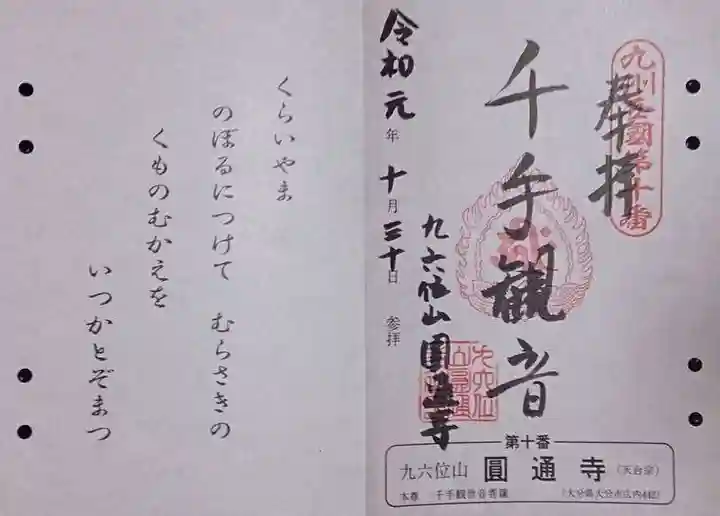 九州西國第十番
奉拝
千手観音
九六位山圓通寺
令和元年十月三十日 参拝
第十番
九六位山 圓通寺 (天台宗)
本尊 千手観世音菩薩 (大分県大分市広内442)
くらいやま
のぼるにつけて むらさきの
くものむかえを
いつかとぞまつ